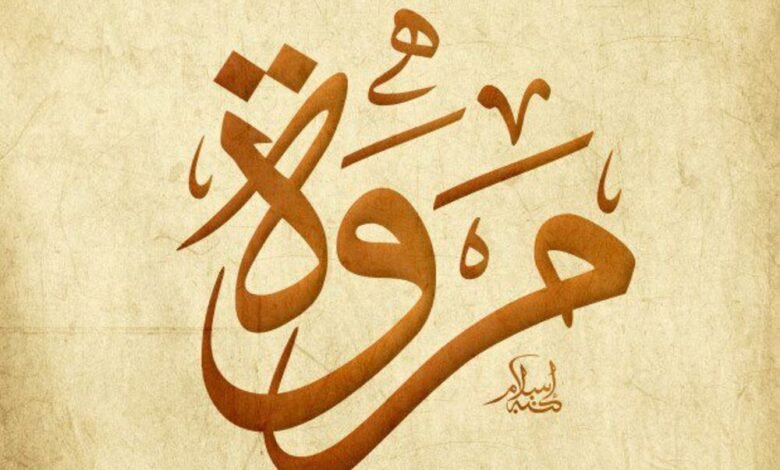 مروة
كتبه إسلام